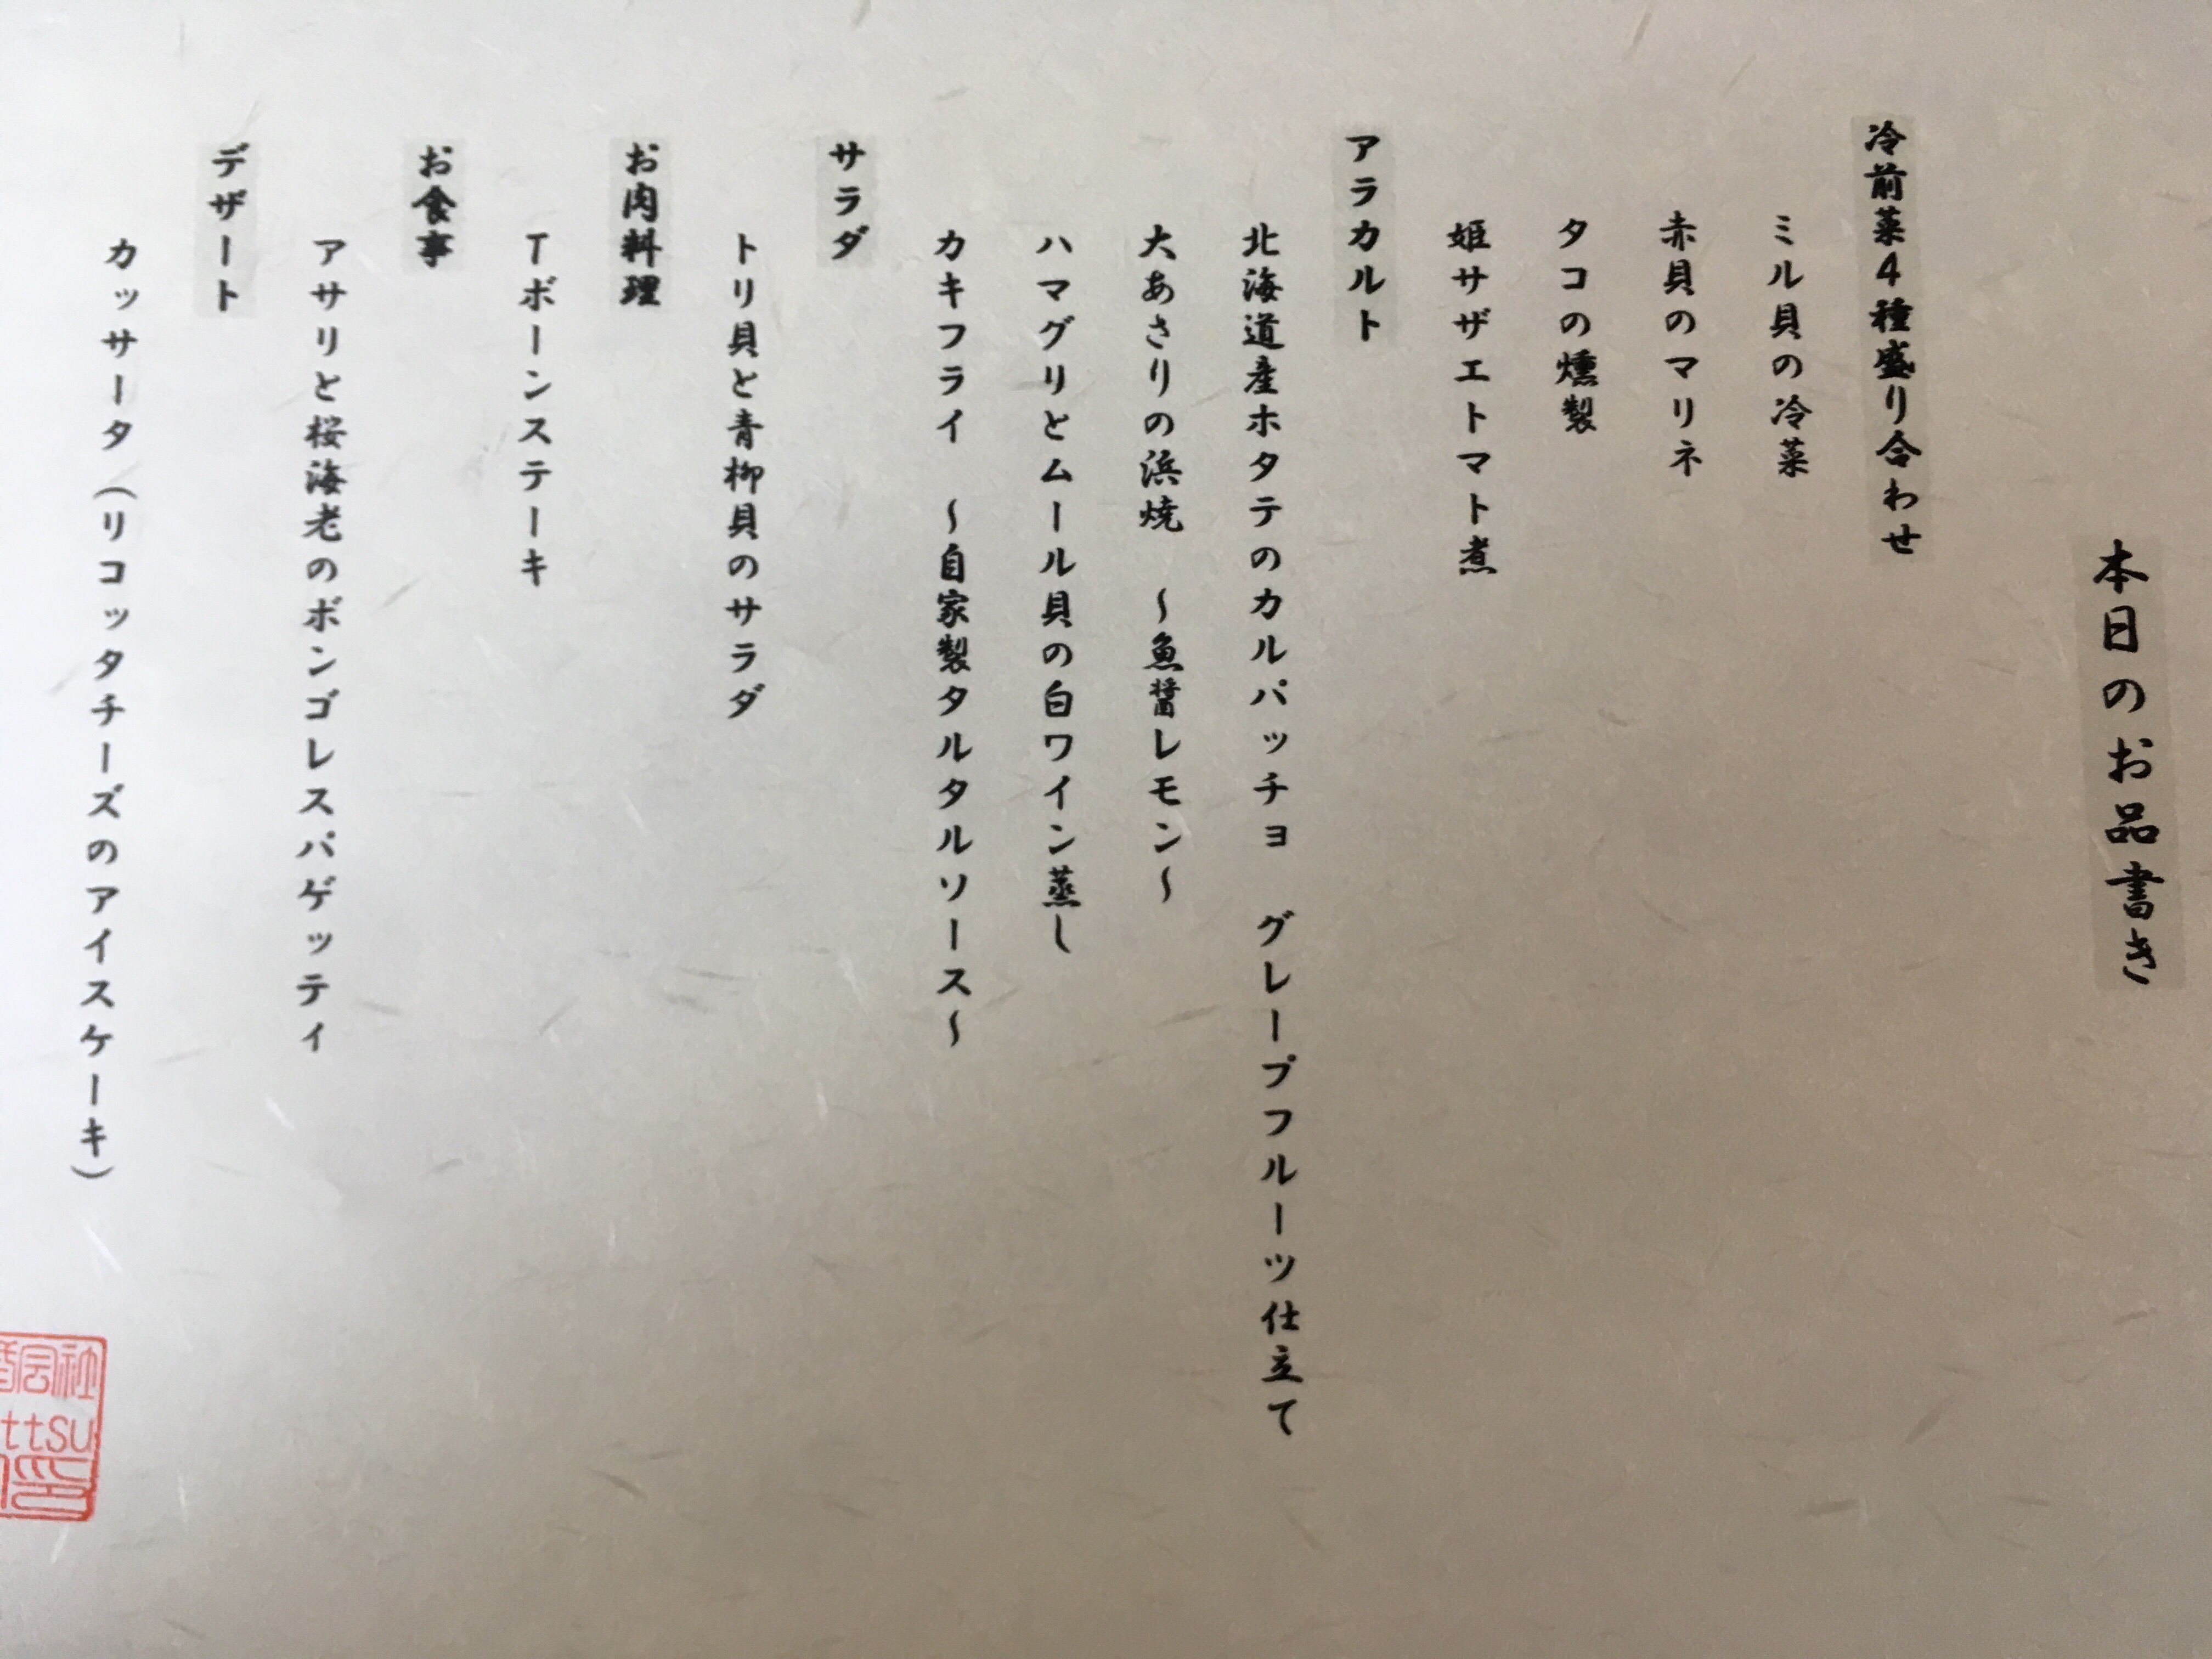 本日のお品書き
冷前菜4種盛り合わせ
ミル貝の冷菜
赤貝のマリネ
タコの燻製
姫サザエトマト煮
アラカルト
北海道産ホタテのカルパッチョ　グレープフルーツ仕立て
大あさりの浜焼　～魚醤レモン～
ハマグリとムール貝の白ワイン蒸し
カキフライ　～自家製タルタルソース～
サラダ
トリ貝と青柳貝のサラダ
お肉料理
Tボーンステーキ
お食事
アサリと桜海老のボンゴレスパゲッティ
デザート
カッサータ（リコッタチーズのアイスケーキ）
会社
ttsu
印